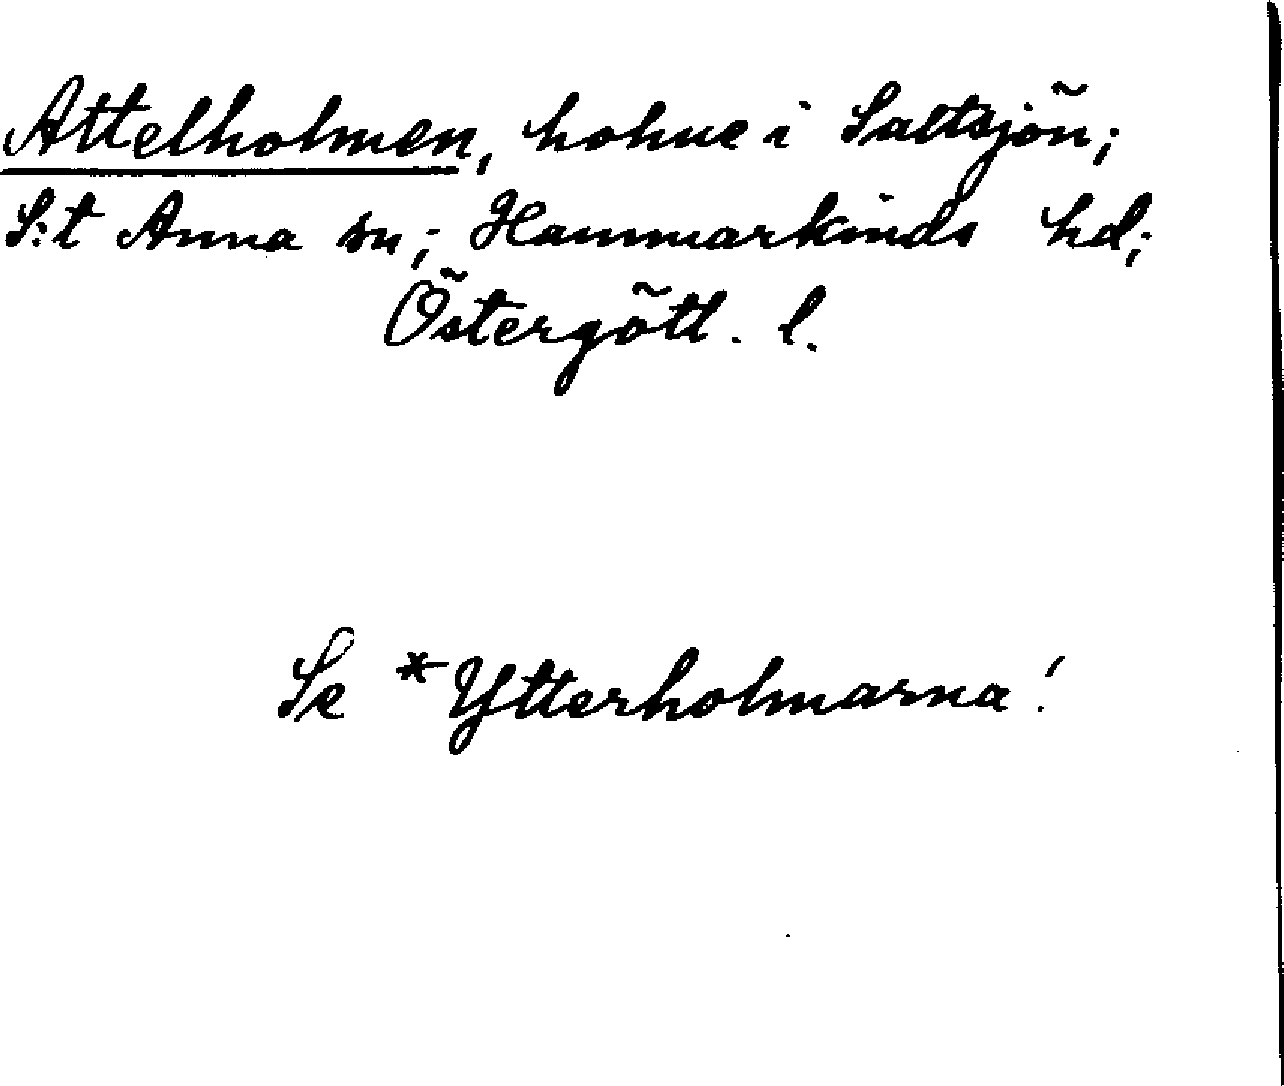 Attelholmen, holme i Saltsjön;
S:t Anna sn; Hammarkinds hd;
Östergötl. l.
Se *Ytterholmarna!